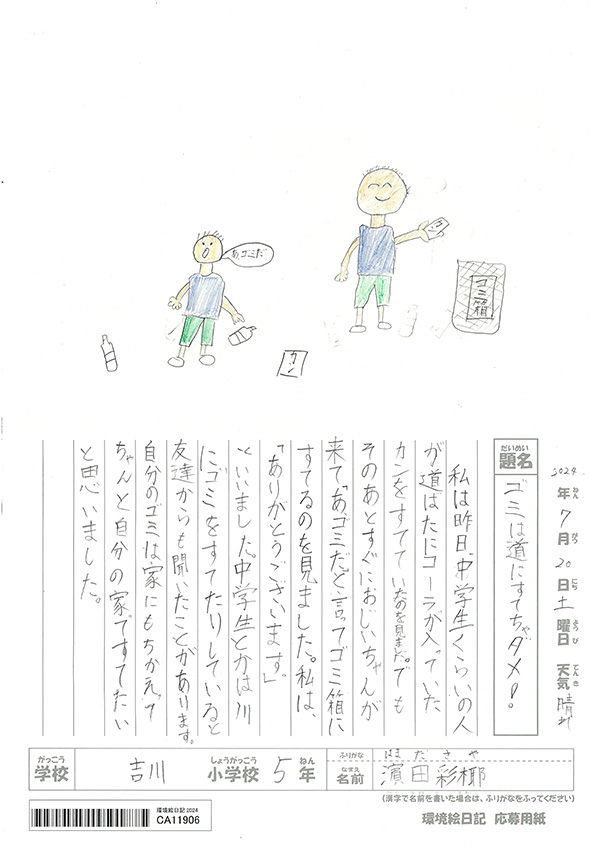 あ、ゴミだ
カン
カン
ゴミ箱
2024年ねん7月がつ20日にち土曜日ようび天気てんき晴れ
題名だいめい
ゴミは道にすてちゃダメ!
私は昨日、中学生くらいの人
が道ばたにコーラが入っていた
カンをすてていたのを見ました。でも
そのあとすぐにおじいちゃんが
来て「あ、ゴミだ」と言ってゴミ箱に
すてるのを見ました。私は、
「ありがとうございます。」
といいました。中学生とかは川
にゴミをすてたりしていると
友達からも聞いたことがあります。
自分のゴミは家にもちかえって
ちゃんと自分の家ですてたい
と思いました。
学校がっこう 吉川 小学校しょうがっこう 5年ねん
ふりがな はまださや
名前なまえ 濵田彩椰
(漢字で名前を書いた場合は、ふりがなをふってください)
環境絵日記 2024
CA11906
環境絵日記 応募用紙